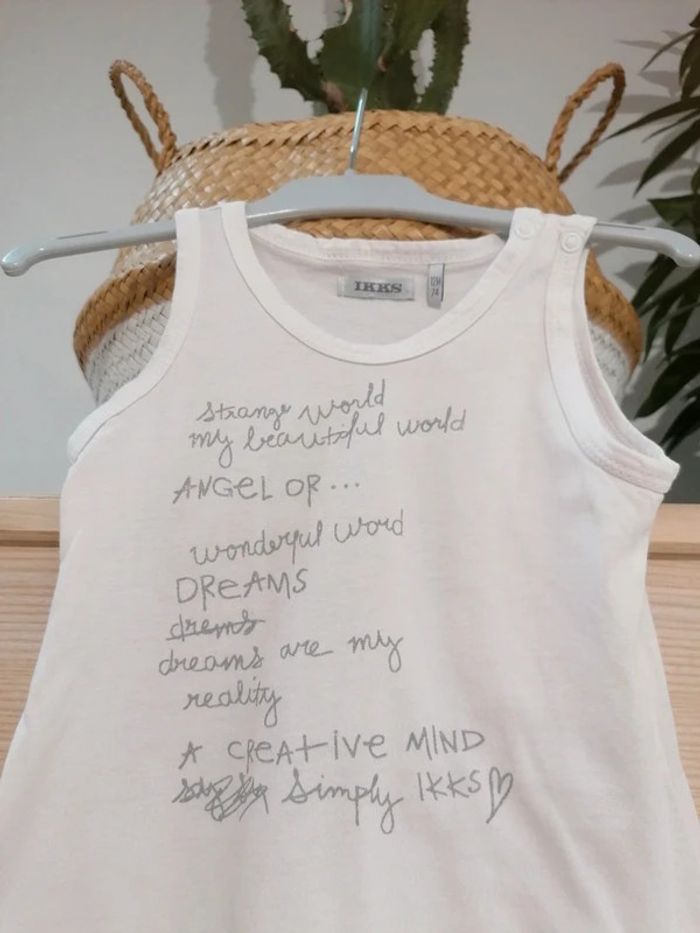 IKKS
12M
74
strange world
my beautiful world
ANGEL OR...
wonderful word
DREAMS
drems
dreams are my
reality
A CREATIVE MIND
Simply IKKS